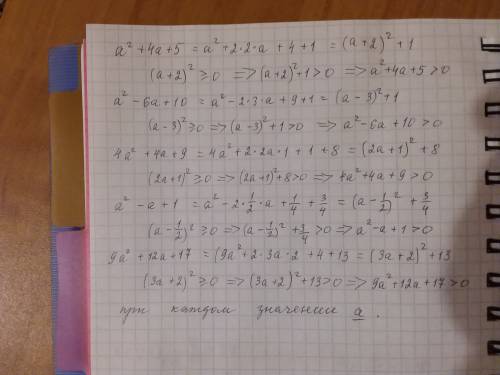 a² + 4a + 5 = a² + 2·2·a + 4 + 1 = (a+2)² + 1
(a+2)² ≥ 0 ⇒ (a+2)² + 1 > 0 ⇒ a² + 4a + 5 > 0
a² - 6a + 10 = a² - 2·3·a + 9 + 1 = (a - 3)² + 1
(a-3)² ≥ 0 ⇒ (a-3)² + 1 > 0 ⇒ a² - 6a + 10 > 0
4a² + 4a + 9 = 4a² + 2·2a·1 + 1 + 8 = (2a+1)² + 8
(2a+1)² ≥ 0 ⇒ (2a+1)² + 8 > 0 ⇒ 4a² + 4a + 9 > 0
a² - a + 1 = a² - 2·1/2·a + 1/4 + 3/4 = (a - 1/2)² + 3/4
(a - 1/2)² ≥ 0 ⇒ (a - 1/2)² + 3/4 > 0 ⇒ a² - a + 1 > 0
9a² + 12a + 17 = (9a² + 2·3a·2 + 4 + 13 = (3a+2)² + 13
(3a+2)² ≥ 0 ⇒ (3a+2)² + 13 > 0 ⇒ 9a² + 12a + 17 > 0
при каждом значении a.